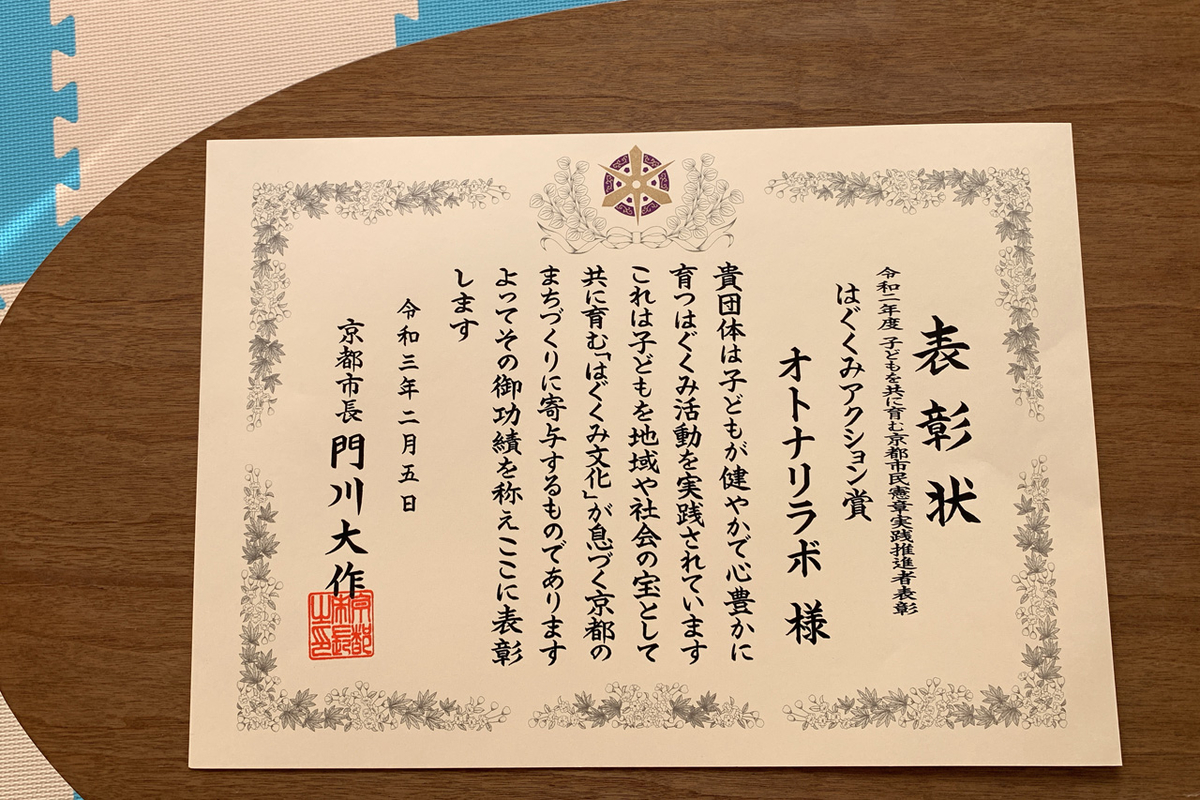 表彰状
令和二年度 子どもを共に育む京都市民憲章実践推進者表彰
はぐくみアクション賞
オトナリラボ 様
貴団体は子どもが健やかで心豊かに
育つはぐくみ活動を実践されています
これは子どもを地域や社会の宝として
共に育む「はぐくみ文化」が息づく京都の
まちづくりに寄与するものであります
よってその御功績を称えここに表彰
します
令和三年二月五日
京都市長 門川大作
京都市長之印